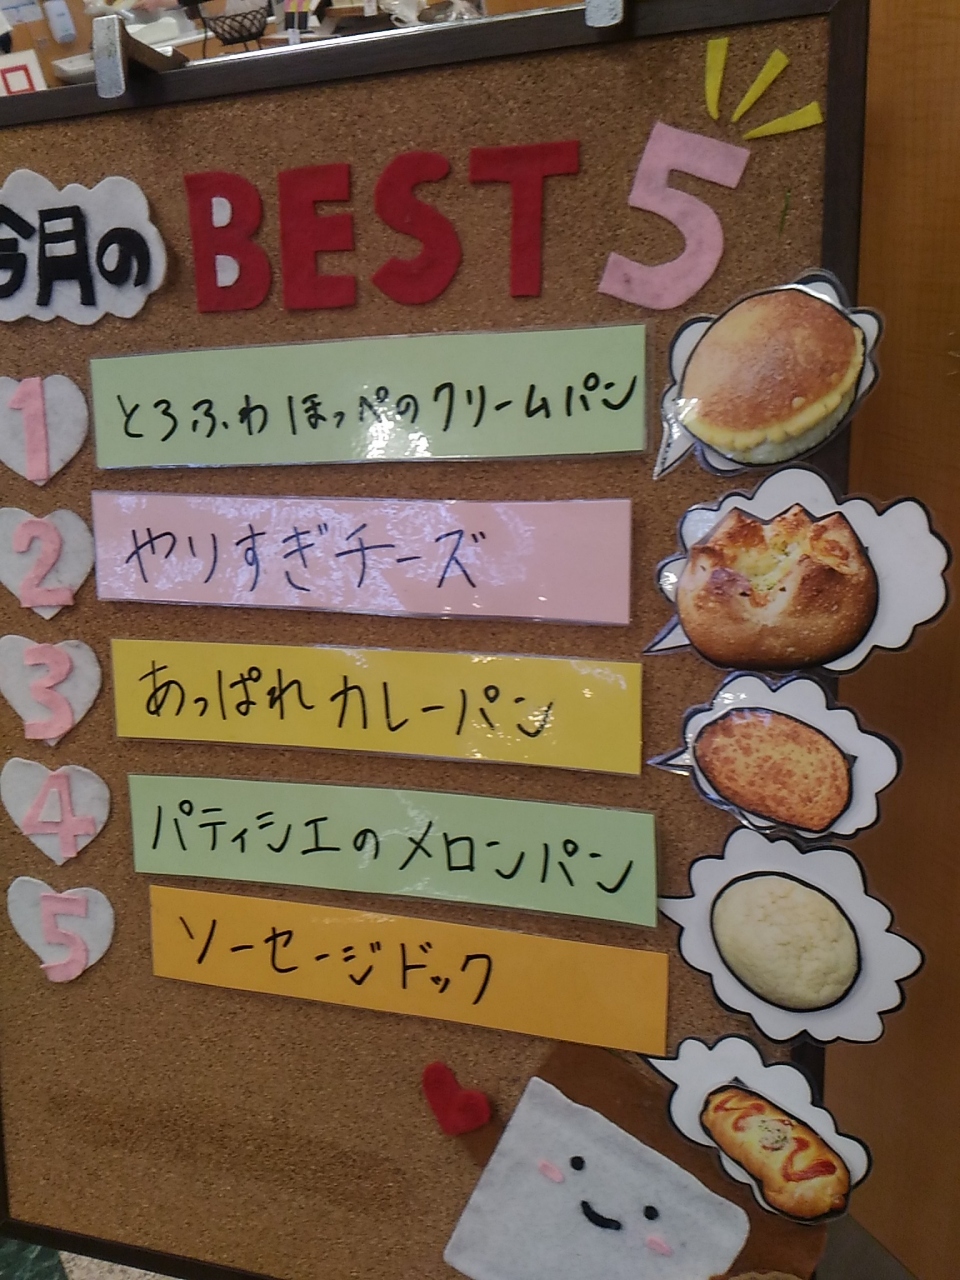 今月の BEST 5
1 とろふわ ほっぺの クリームパン
2 やりすぎチーズ
3 あっぱれ カレーパン
4 パティシエの メロンパン
5 ソーセージドック